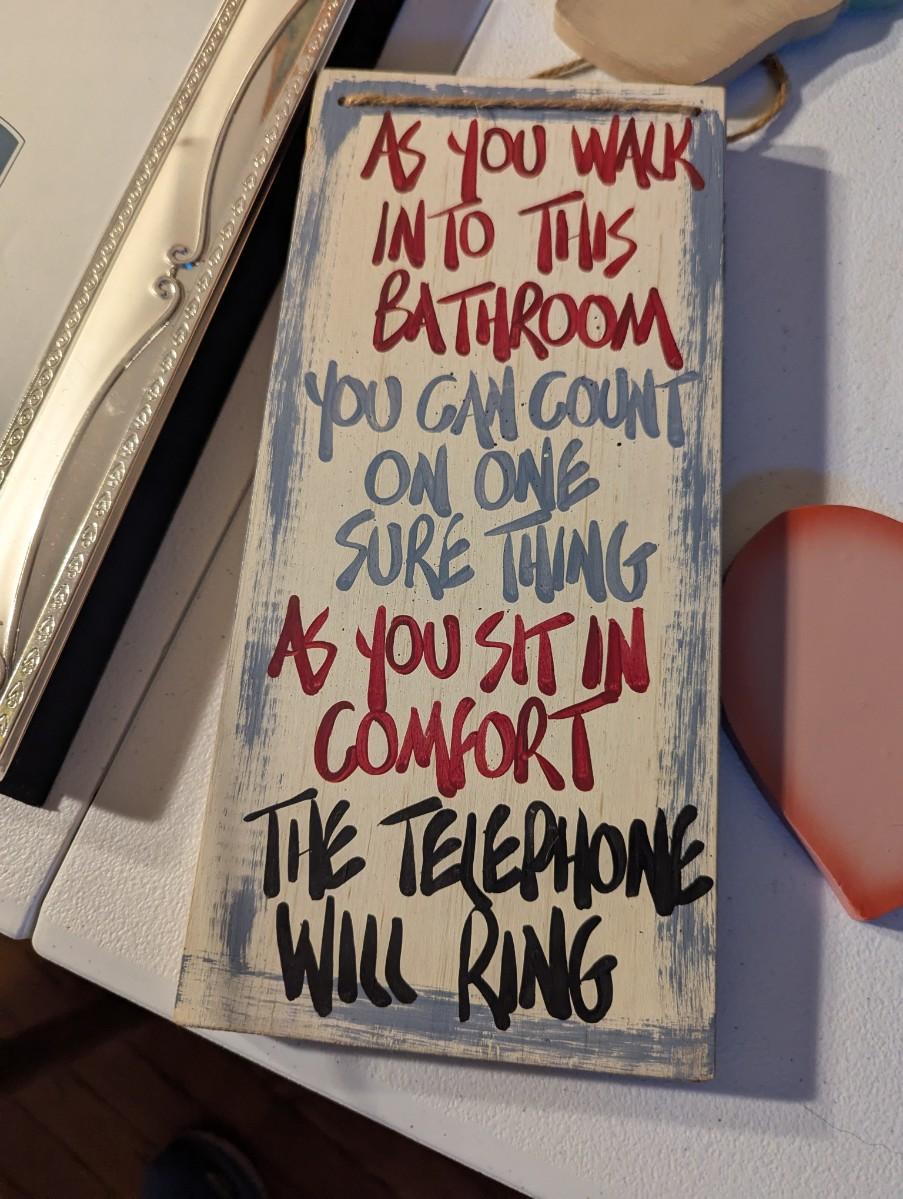 AS YOU WALK
INTO THIS
BATHROOM
YOU CAN COUNT
ON ONE
SURE THING
AS YOU SIT IN
COMFORT
THE TELEPHONE
WILL RING